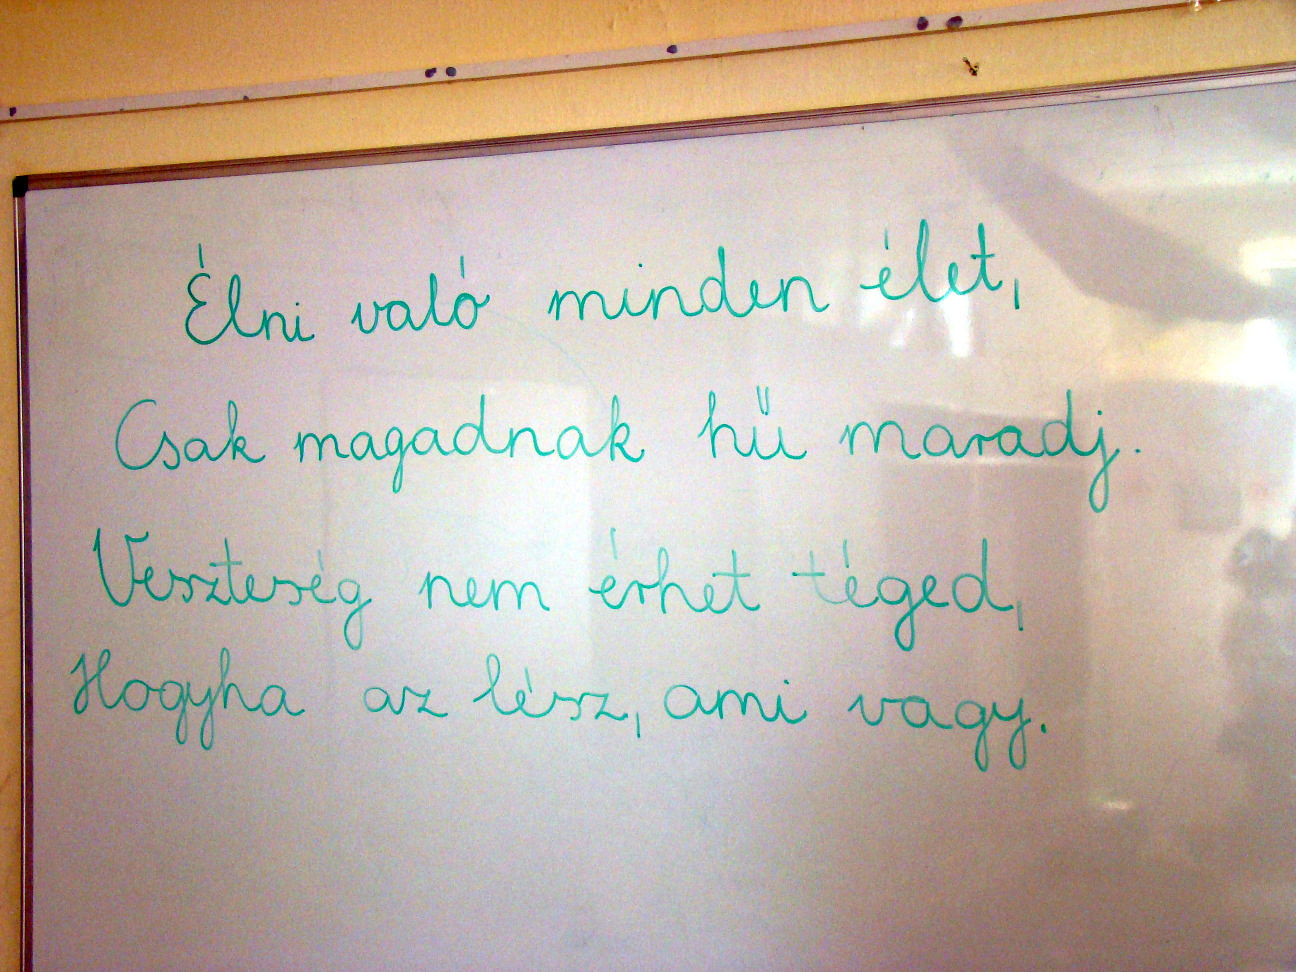 Élni való minden élet,
Csak magadnak hű maradj.
Veszteség nem érhet téged,
Hogyha az lész, ami vagy.